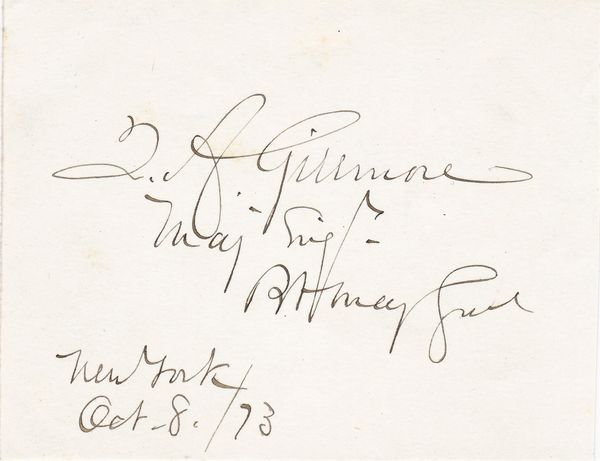 Q. A. Gillmore
Maj Eng.rs
Bt. Maj Genl
New York
Oct. 8. / 73